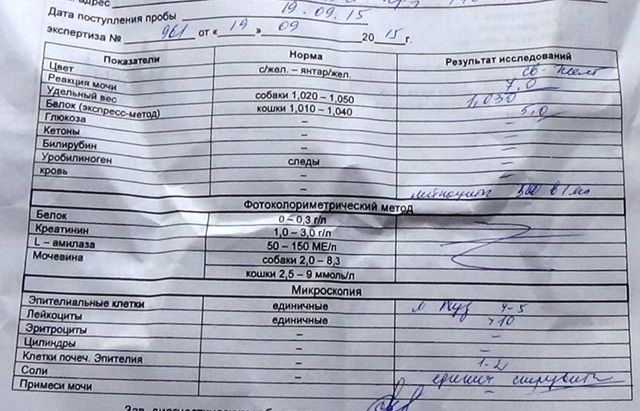 адрес
Дата поступления пробы 19.09.15
экспертиза № 961 от «19» 09 2015 г.
Показатели Норма Результат исследований
Цвет с/жел. – янтар/жел. св. желт
Реакция мочи 7,0
Удельный вес собаки 1,020 – 1,050 1,030
Белок (экспресс-метод) кошки 1,010 – 1,040 5,0
Глюкоза – –
Кетоны – –
Билирубин – –
Уробилиноген следы –
кровь – –
– лейкоциты 500 в 1 мл
Фотоколориметрический метод
Белок 0 – 0,3 г/л
Креатинин 1,0 – 3,0 г/л
L – амилаза 50 – 150 МЕ/л
Мочевина собаки 2,0 – 8,3
кошки 2,5 – 9 ммоль/л
Микроскопия
Эпителиальные клетки единичные 4-5
Лейкоциты единичные >10
Эритроциты – –
Цилиндры – –
Клетки почеч. Эпителия – 1-2
Соли – единич струвит
Примеси мочи – –